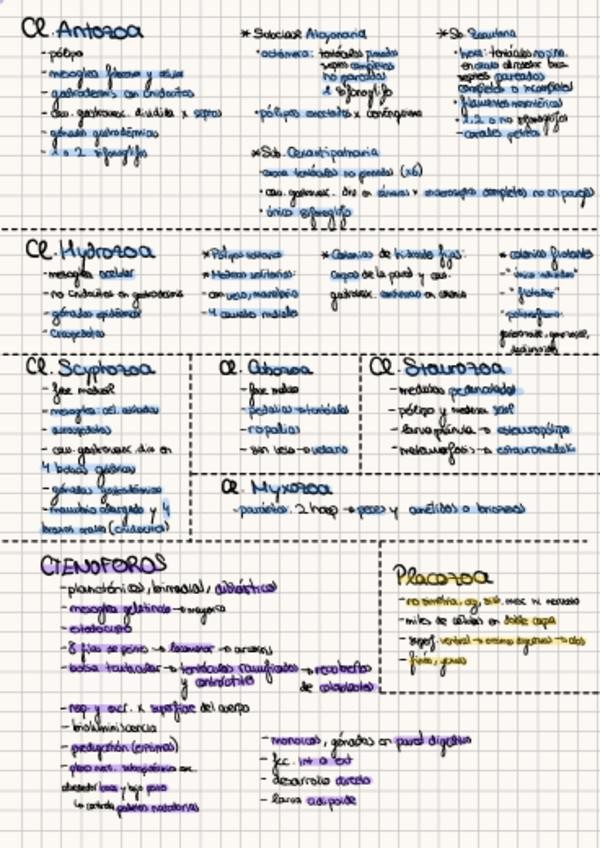 Cl. Antozoa
- pólipo
- mesoglea fibrosa y celular
- gastrodermis con cnidocitos
- cav. gastrovasc. dividida x septos
- gónada gastrodérmicas
- 1 o 2 sifonoglifo
* Subclase Alcyonaria
· octámera: tentáculos pinnados
septos completos
no pareados
1 sifonoglifo
· pólipos conectados x cenénquima
* Sb. Zoantaria
· hexa: tentáculos no pinn.
septos pareados
completos o incompletos
· filamentos mesentéricos
· 1, 2 o no sifonoglifo
- corales pétreos
* Sub. Ceriantipatharia
· corona tentáculos no pinnados (x6)
· cav. gastrovasc. div en cámaras x mesoseptos completos no en parejas
· único sifonoglifo
Cl. Hydrozoa
- mesoglea acelular
- no cnidocitos en gastrodermis
- gónadas epidermis
- craspedotas
* Pólipos solitarios
* Medusas solitarias:
- con velo, manubrio
- 4 canales radiales
* Colonias de hidroides fijas:
capas de la pared y cav.
gastrovasc. continuas en colonia
* colonias flotantes
- "flotador"
Cl. Scyphozoa
- fase medusa
- mesoglea cel. aisladas
- acraspedotas
- cav. gastrovasc. div en
4 bolsas gástricas
- gónadas gastrodérmicas
- manubrio alargado y 4
brazos orales (cnidocitos)
Cl. Cubozoa
- fase medusa
- pedalios → tentáculos
- ropalias
- sin velo → velario
Cl. Staurozoa
- medusas pedunculadas
- pólipo y medusa sésil
- larva plánula → estauropólipo
- metamorfosis → estauromedusa
Cl. Myxozoa
- parásitos: 2 hosp → peces y anélidos o briozoos
CTENOFOROS
- planctónicos, birradial, diblásticos
- mesoglea gelatinosa → mayoría
- estatocisto
- 8 filas de peines → locomotor →
- bolsa tentacular → tentáculos ramificados → recubiertos
y contráctiles de coloblastos
- resp y excr. x superficie del cuerpo
- bioluminiscencia
- predigestión (enzimas)
- plexo nerv. subepidérmico con
alrededor boca y bajo peine
↳ controla paletas natatorias
- monoicos, gónadas en pared digestiva
- fec. int o ext
- desarrollo directo
- larva cidipoide
Placozoa
- no simetría, org, sist. musc ni nervioso
- miles de células en doble capa
- superf. ventral →